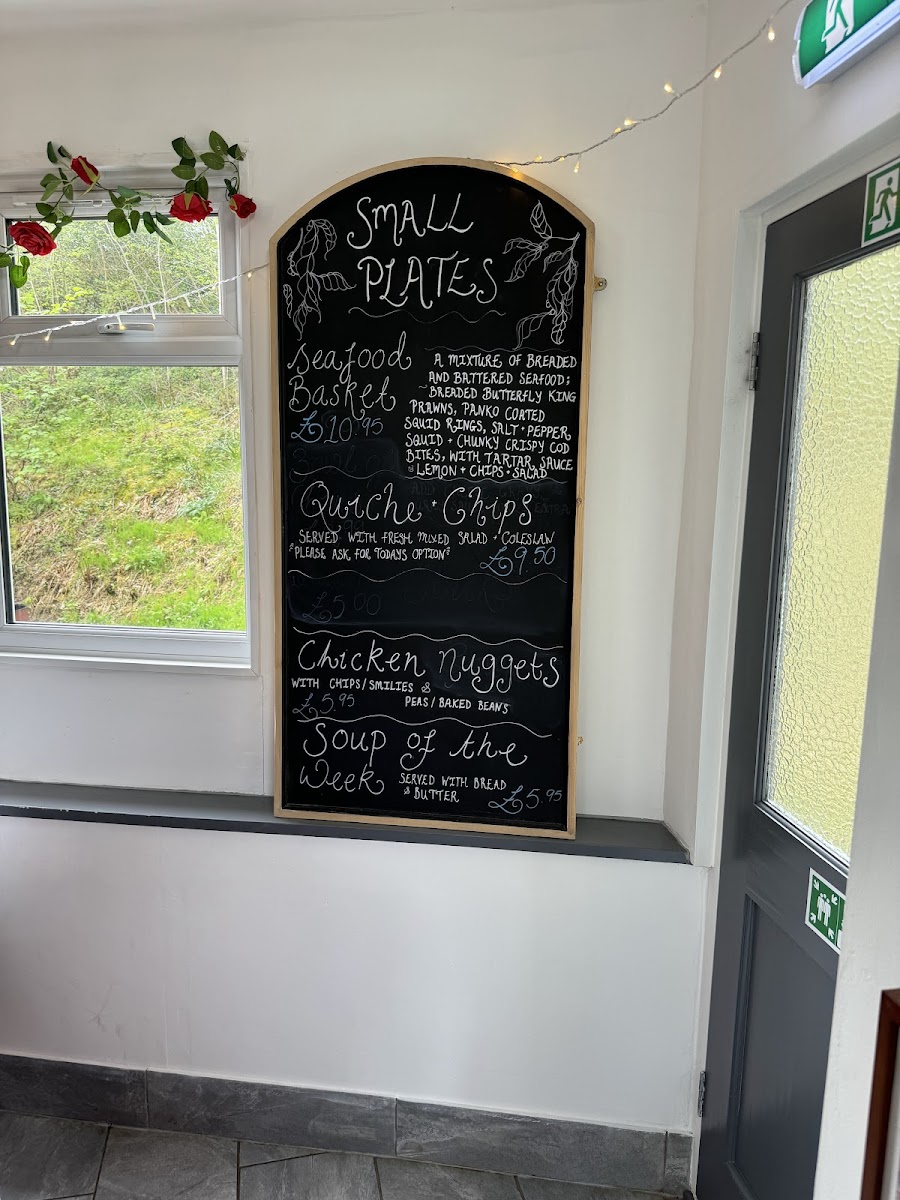 SMALL
PLATES
Seafood
Basket
£10.95
A MIXTURE OF BREADED
AND BATTERED SEAFOOD;
~ BREADED BUTTERFLY KING
PRAWNS, PANKO COATED
SQUID RINGS, SALT + PEPPER
SQUID + CHUNKY CRISPY COD
BITES, WITH TARTAR SAUCE
& LEMON + CHIPS + SALAD
Quiche + Chips
SERVED WITH FRESH MIXED SALAD + COLESLAW
*PLEASE ASK FOR TODAYS OPTION*
£9.50
£5.00
Chicken Nuggets
WITH CHIPS/SMILIES &
PEAS/BAKED BEANS
£5.95
Soup of the
Week
SERVED WITH BREAD
& BUTTER
£5.95